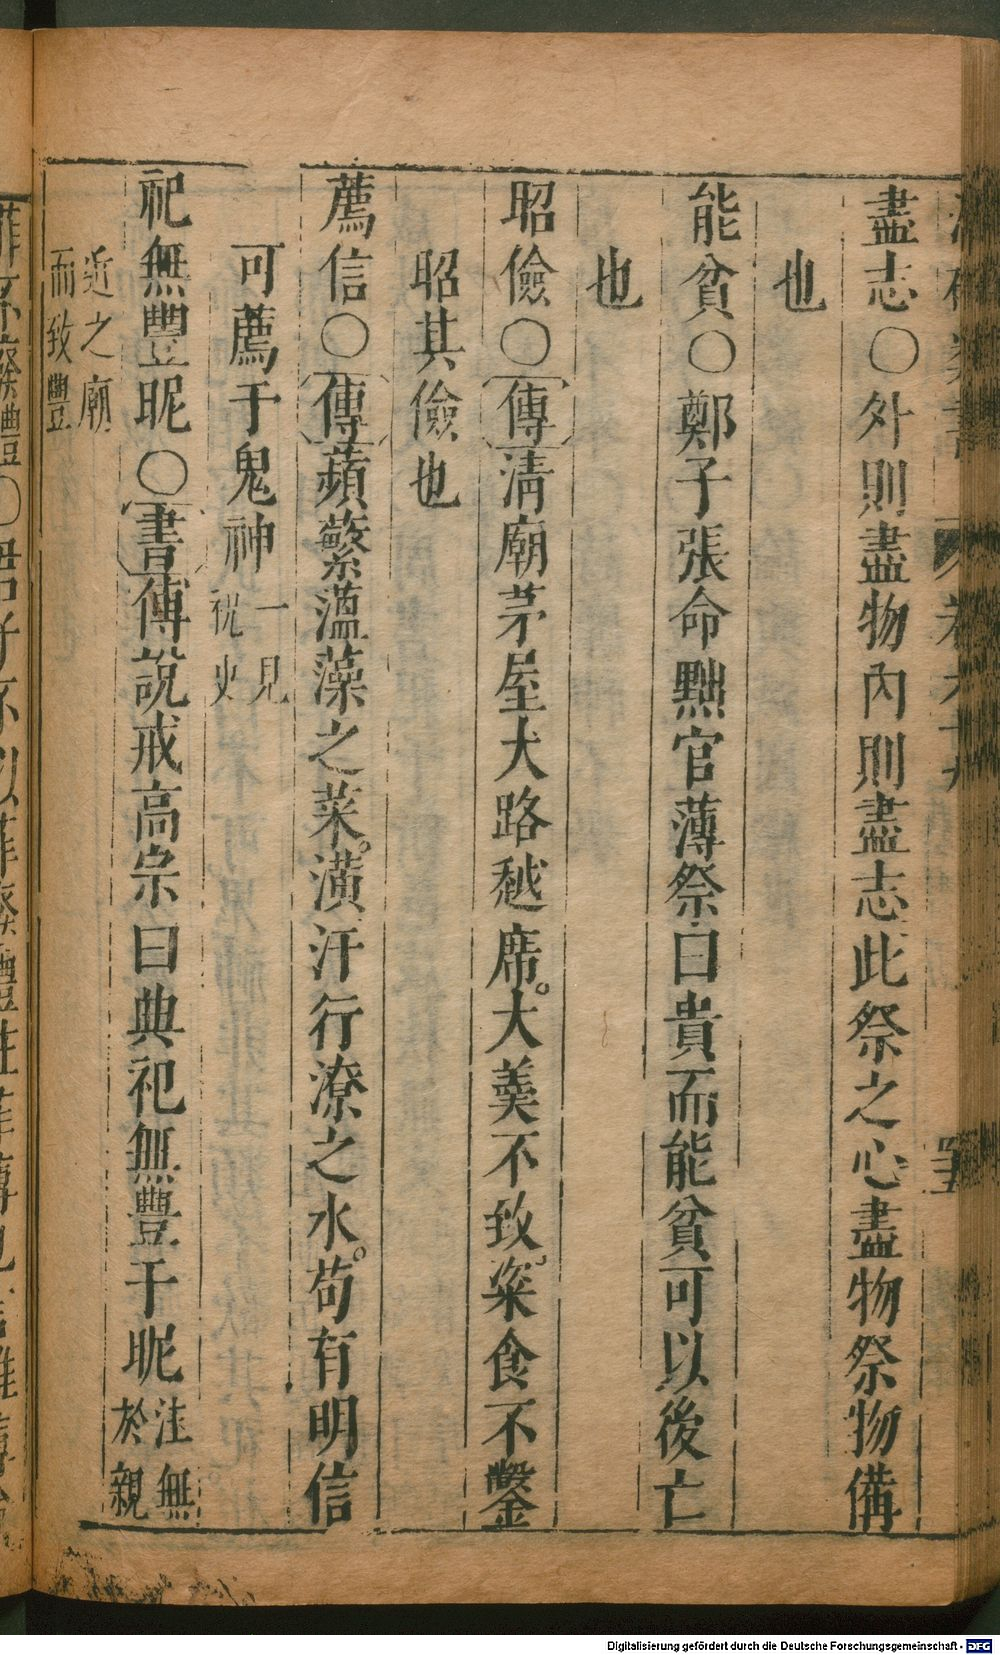 盡志○外則盡物內則盡志此祭之心盡物祭物備
也
能貧○鄭子張命黜官薄祭曰貴而能貧可以後亡
也
昭儉○傳清廟茅屋大路越席大羹不致粢食不鑿
昭其儉也
薦信○傳蘋蘩薀藻之菜潢汙行潦之水苟有明信
可薦于鬼神一見祝史
祀無豐昵○書傅說戒高宗曰典祀無豐于昵注無於親
近之廟而致豐
Digitalisierung gefördert durch die Deutsche Forschungsgemeinschaft - DFG